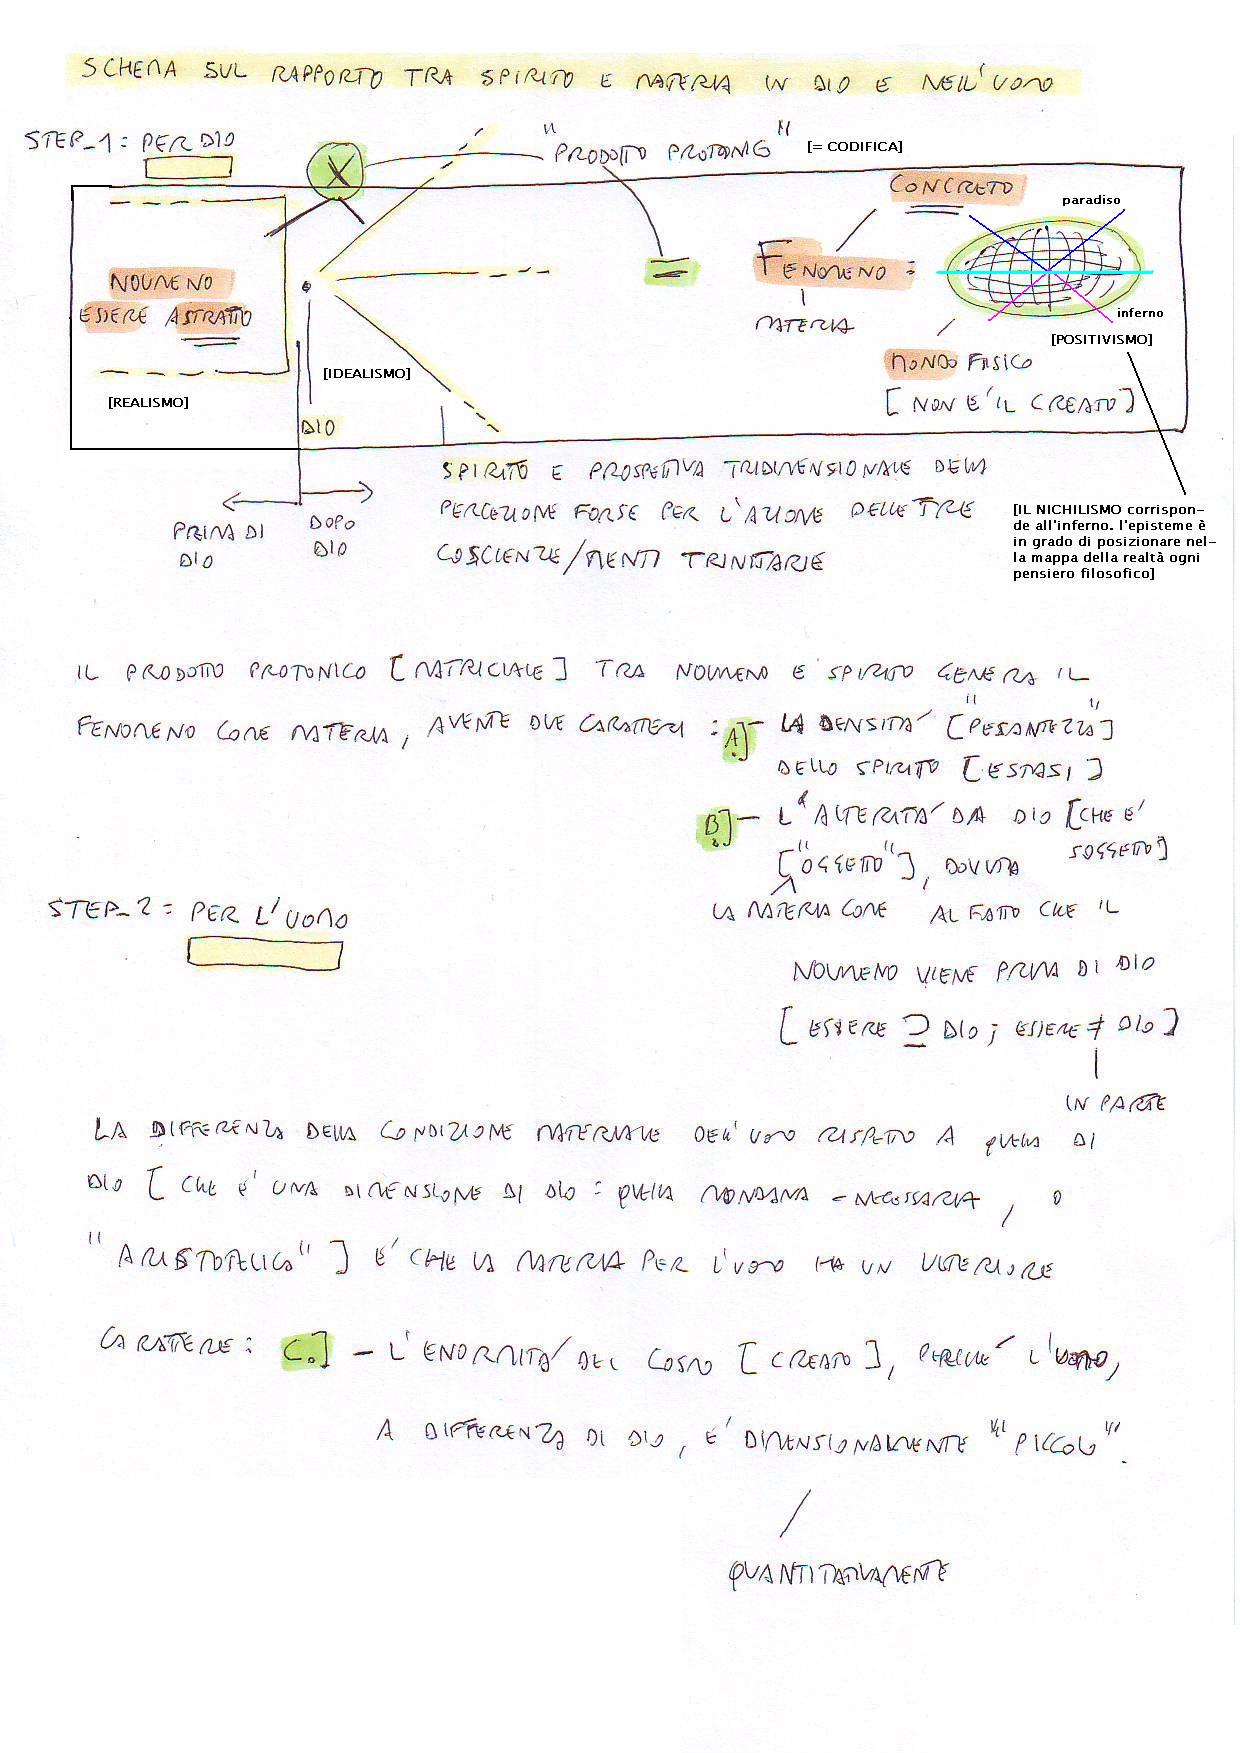 SCHEMA SUL RAPPORTO TRA SPIRITO E MATERIA IN DIO E NELL'UOMO
STEP_1 = PER DIO
X
"PRODOTTO PROTONICO" [= CODIFICA]
CONCRETO
paradiso
NOUMENO
ESSERE ASTRATTO
=
FENOMENO =
MATERIA
inferno
[POSITIVISMO]
MONDO FISICO
[NON E' IL CREATO]
[IDEALISMO]
[REALISMO]
DIO
PRIMA DI
DIO
DOPO
DIO
SPIRITO E PROSPETTIVA TRIDIMENSIONALE DELLA
PERCEZIONE FORSE PER L'AZIONE DELLE TRE
COSCIENZE/MENTI TRINITARIE
[IL NICHILISMO corrispon-
de all'inferno. l'episteme è
in grado di posizionare nel-
la mappa della realtà ogni
pensiero filosofico]
IL PRODOTTO PROTONICO [MATRICIALE] TRA NOUMENO E SPIRITO GENERA IL
FENOMENO COME MATERIA, AVENTE DUE CARATTERI : A] - LA DENSITA' ["PESANTEZZA"]
DELLO SPIRITO [ESTASI]
B] - L'ALTERITA' DA DIO [CHE E'
SOGGETTO]
["OGGETTO"], DOVUTA
LA MATERIA COME AL FATTO CHE IL
STEP_2 = PER L'UOMO
NOUMENO VIENE PRIMA DI DIO
[ESSERE ⊇ DIO; ESSERE ≠ DIO]
IN PARTE
LA DIFFERENZA DELLA CONDIZIONE MATERIALE DELL'UOMO RISPETTO A QUELLA DI
DIO [CHE E' UNA DIMENSIONE DI DIO = QUELLA MONDANA-NECESSARIA, O
"ARISTOTELICO"] E' CHE LA MATERIA PER L'UOMO HA UN ULTERIORE
CARATTERE: C.] - L'ENORMITA' DEL COSMO [CREATO], PERCHE' L'UOMO,
A DIFFERENZA DI DIO, E' DIMENSIONALMENTE "PICCOLO".
QUANTITATIVAMENTE